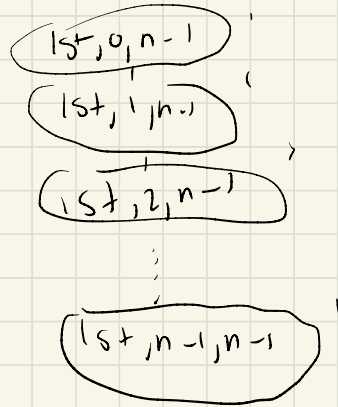 lst, 0, n-1
lst, 1, n-1
lst, 2, n-1
lst, n-1, n-1